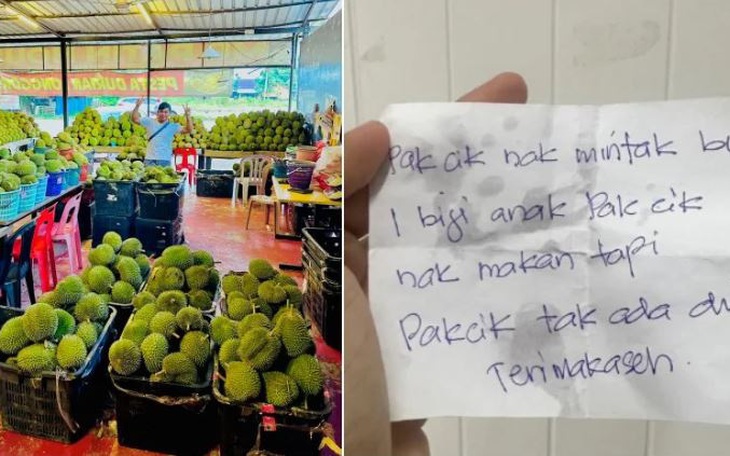 PESTA DURIAN ONGGU
Pak cik nak mintak bu
1 biji anak Pak cik
nak makan tapi
Pakcik tak ada du
Terimakaseh.